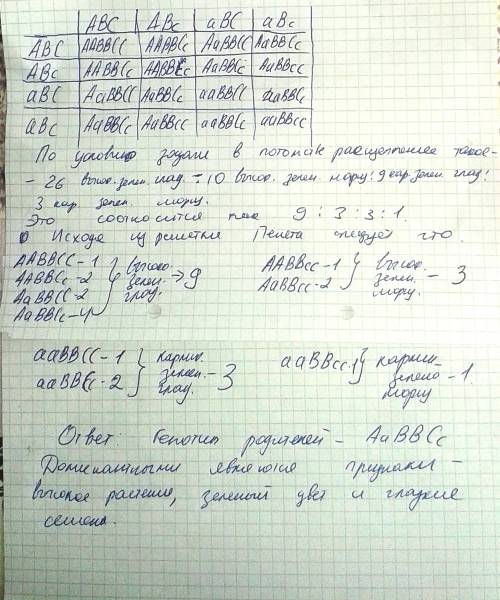 ABC ABc aBC aBc
ABC AABBCC AABBCc AaBBCC AaBBCc
ABc AABBCc AABBcc AaBBCc AaBBcc
aBC AaBBCC AaBBCc aaBBCC aaBBCc
aBc AaBBCc AaBBcc aaBBCc aaBBcc
По условию задачи в потомстве расщепление такое-
- 26 высок. зелен. глад. - 10 высок. зелен. морщ: 9 кар. зелен. глад:
3 кар. зелен. морщ.
Это соотносится как 9:3:3:1.
Исходя из решетки Пенета следует что.
AABBCC-1 } высок. AABBcc-1 } высок.
AABBCc-2 зелен. → 9 AaBBcc-2 зелен. - 3
AaBBCC-2 глад. морщ.
AaBBCc-4
aaBBCC-1 } карлик. aaBBcc-1 } карлик-
aaBBCc-2 зелен. - 3 зелено - 1.
глад. морщ
Ответ: Генотип родителей - AaBBCc
Доминантными являются признаки -
высокое растение, зеленый цвет и гладкие
семена.